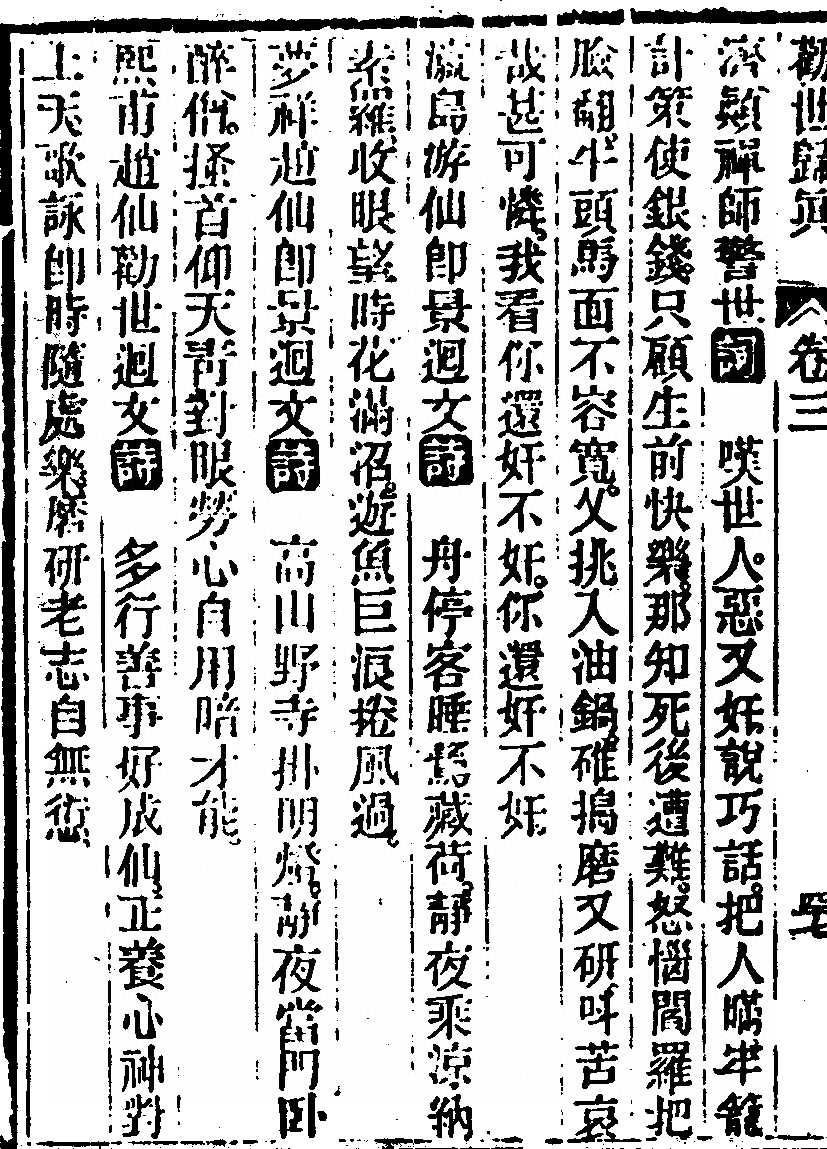 勸世歸真 卷三
濟顛禪師警世詞 嘆世人。惡又奸。說巧話。把人瞞。牢籠
計策使銀錢。只顧生前快樂。那知死後遭難。怒惱閻羅把
臉翻。牛頭馬面不容寬。乂挑入油鍋。碓搗磨又研。叫苦哀
哉甚可憐。我看你還奸不奸。你還奸不奸。
瀛島游仙即景迴文詩 舟停客睡鷺藏荷。靜夜乘涼納
素羅。收眼望時花滿沼。遊魚巨浪捲風過。
夢祥趙仙即景迴文詩 高山野寺掛明燈。靜夜當門臥
醉僧。搔首仰天青對眼勞心自用暗才能。
熙甫趙仙勸世迴文詩 多行善事好成仙。正養心神對
上天歌詠即時隨處樂。磨研老志自無愆。